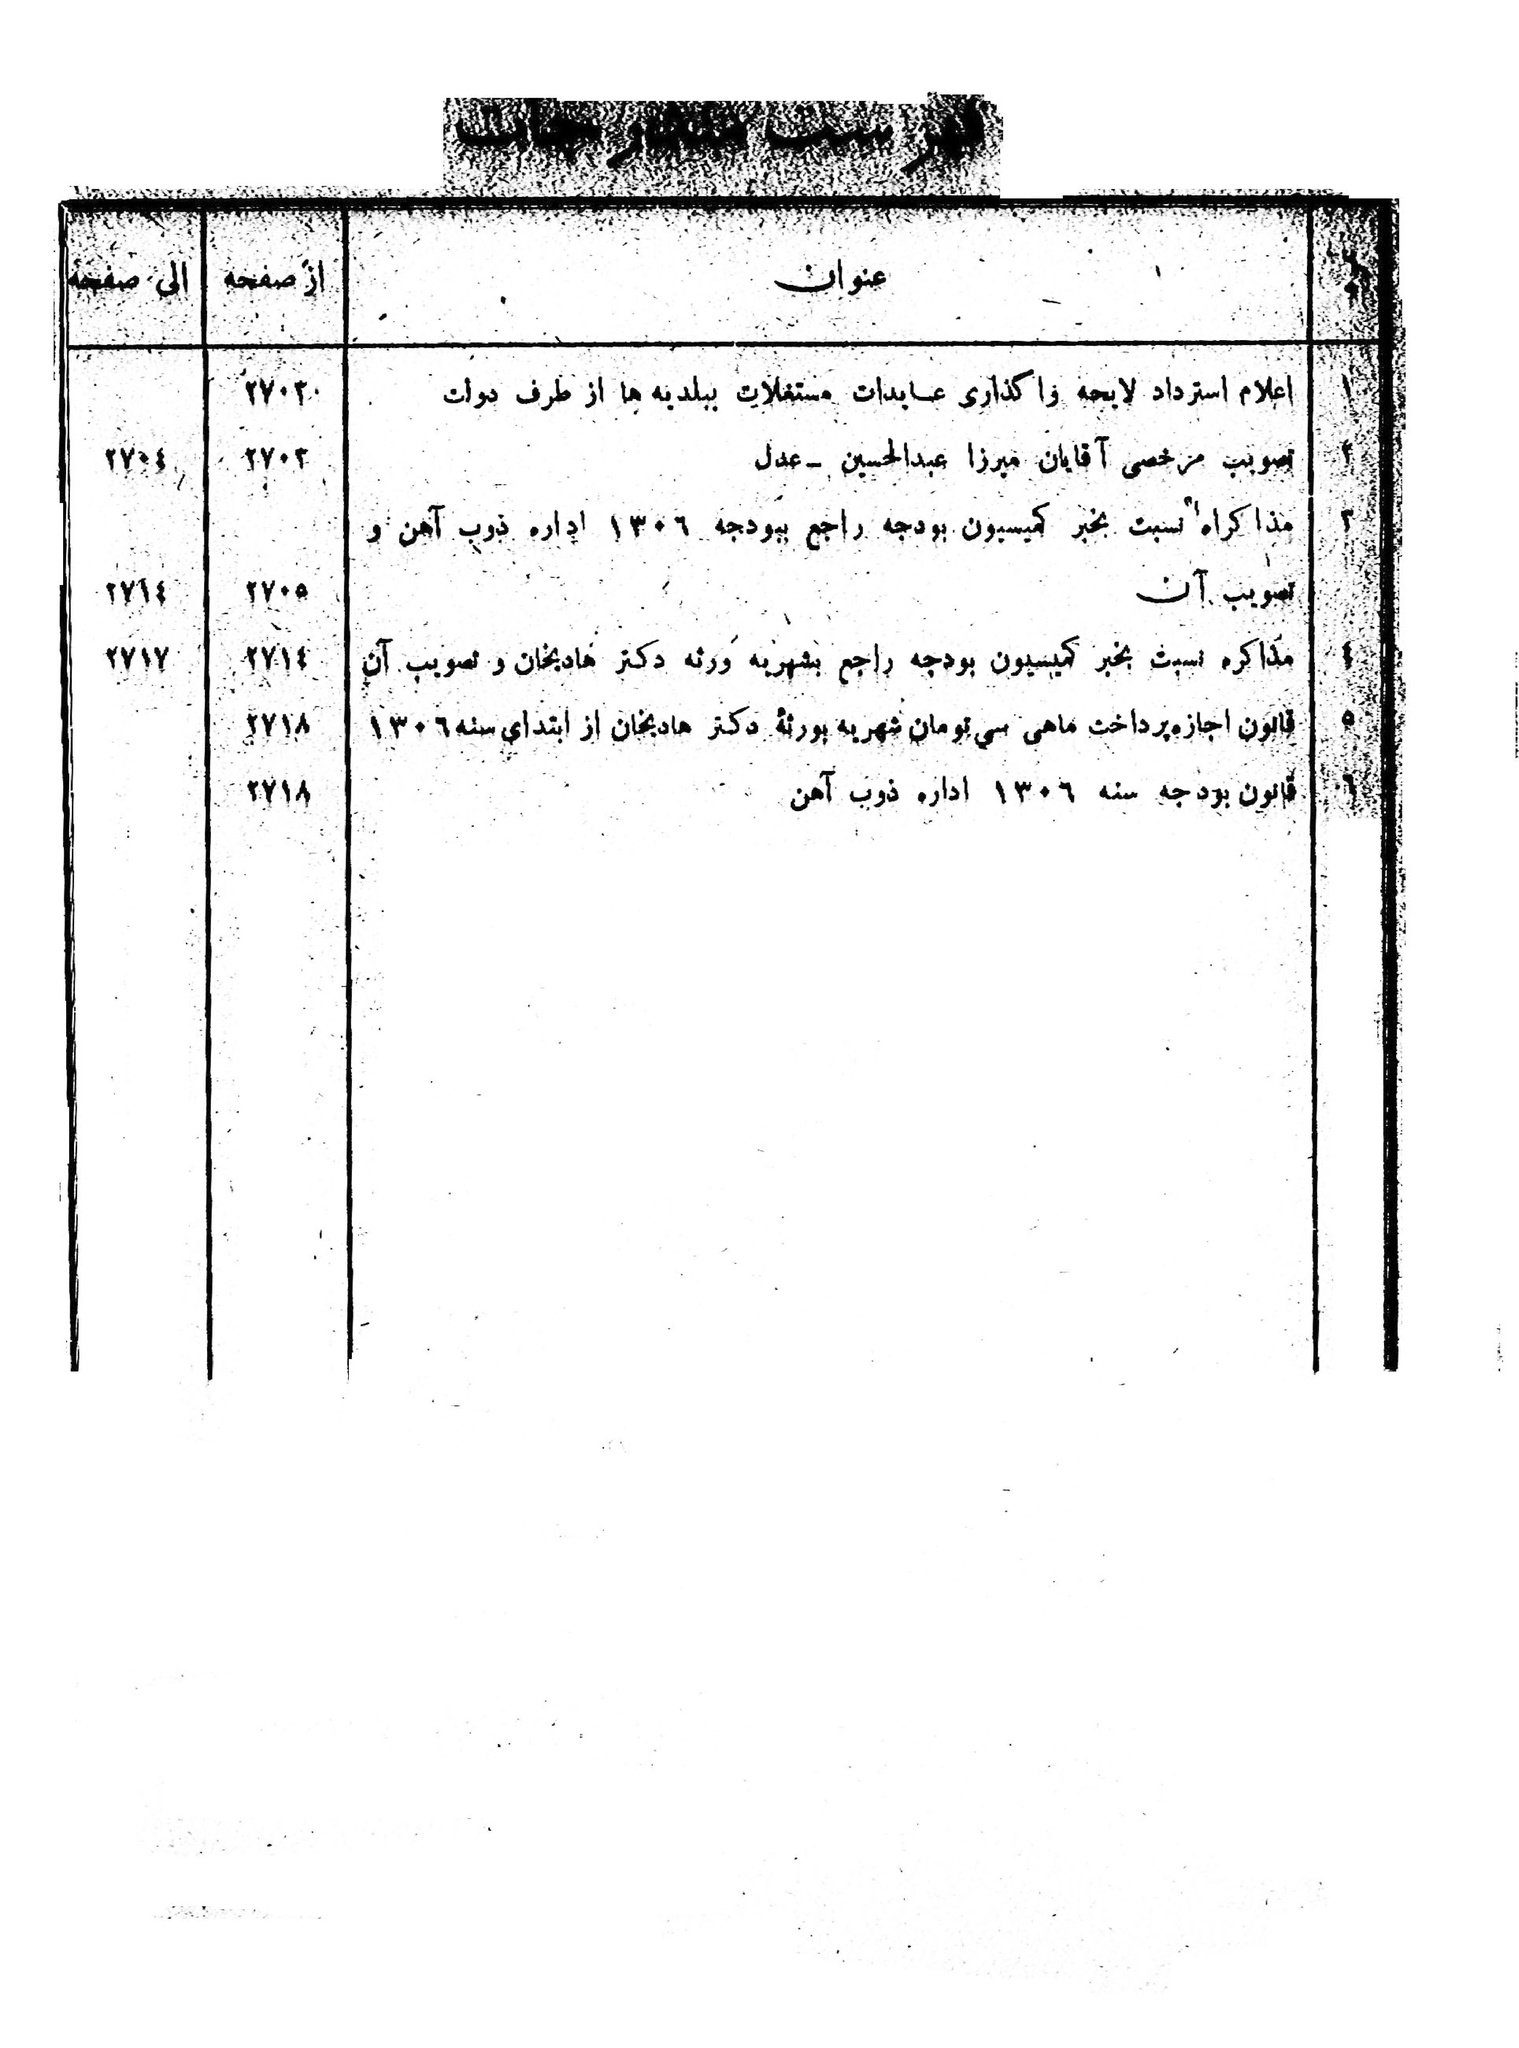 فهرست مندرجات
نمره عنوان از صفحه الی صفحه
۱ اعلام استرداد لایحه واگذاری عایدات مستغلات ببلدیه ها از طرف دولت ۲۷۰۳
۲ تصویب مرخصی آقایان میرزا عبدالحسین - عدل ۲۷۰۳ ۲۷۰٤
۳ مذاکراه نسبت بخبر کمیسیون بودجه راجع ببودجه ۱۳۰٦ اداره ذوب آهن و
تصویب آن ۲۷۰۵ ۲۷۱٤
٤ مذاکره نسبت بخبر کمیسیون بودجه راجع بشهریه ورثه دکتر هادیخان و تصویب آن ۲۷۱٤ ۲۷۱۷
۵ قانون اجازه پرداخت ماهی سی تومان شهریه بورثهٔ دکتر هادیخان از ابتدای سنه ۱۳۰٦ ۲۷۱۸
٦ قانون بودجه سنه ۱۳۰٦ اداره ذوب آهن ۲۷۱۸